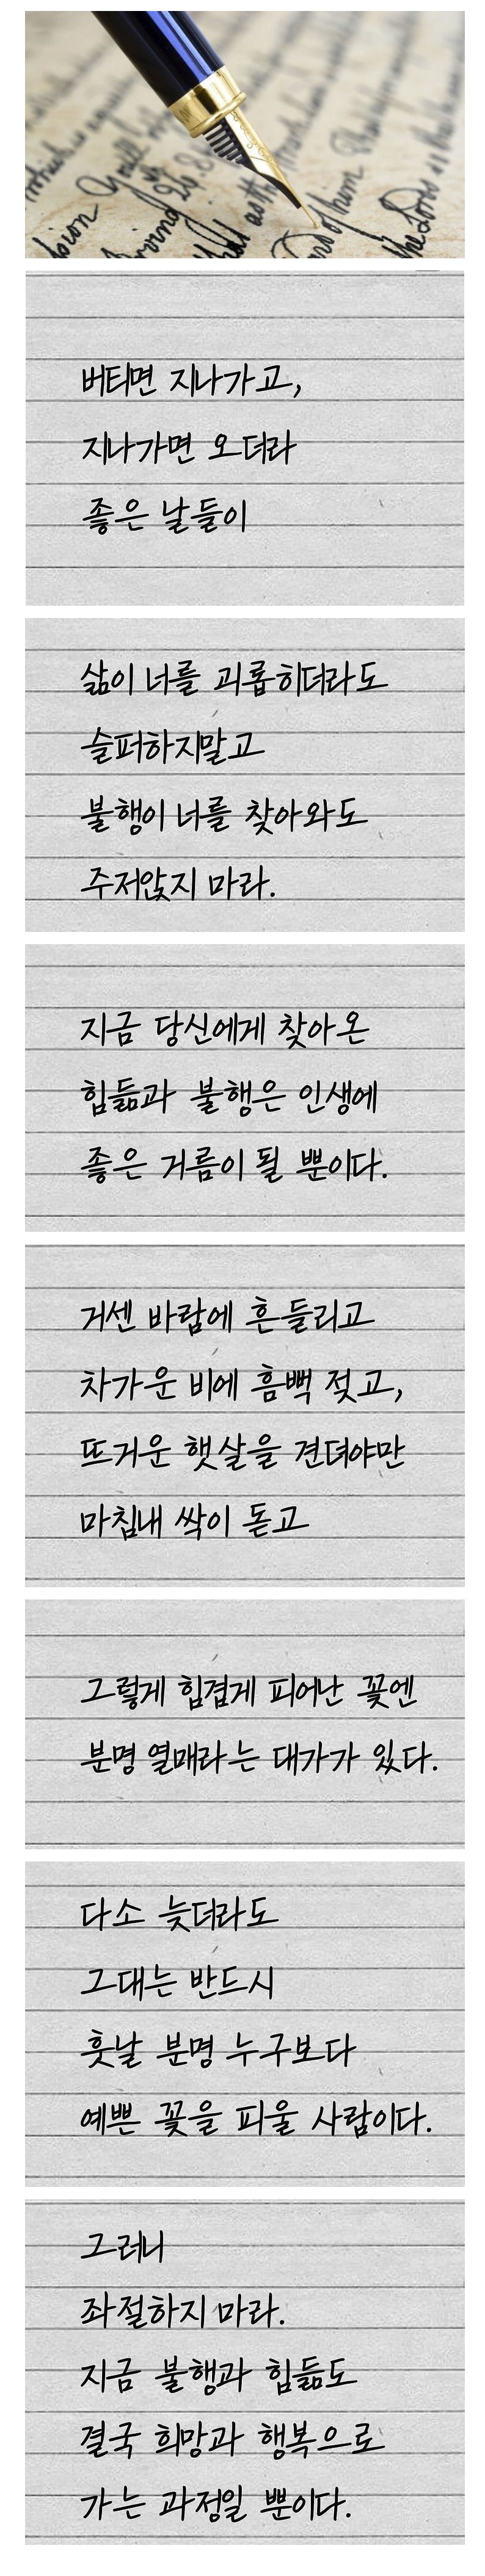 버티면 지나가고,
지나가면 오더라
좋은 날들이
삶이 너를 괴롭히더라도
슬퍼하지말고
불행이 너를 찾아와도
주저앉지 마라.
지금 당신에게 찾아온
힘듦과 불행은 인생에
좋은 거름이 될 뿐이다.
거센 바람에 흔들리고
차가운 비에 흠뻑 젖고,
뜨거운 햇살을 견뎌야만
마침내 싹이 돋고
그렇게 힘겹게 피어난 꽃엔
분명 열매라는 대가가 있다.
다소 늦더라도
그대는 반드시
훗날 분명 누구보다
예쁜 꽃을 피울 사람이다.
그러니
좌절하지 마라.
지금 불행과 힘듦도
결국 희망과 행복으로
가는 과정일 뿐이다.